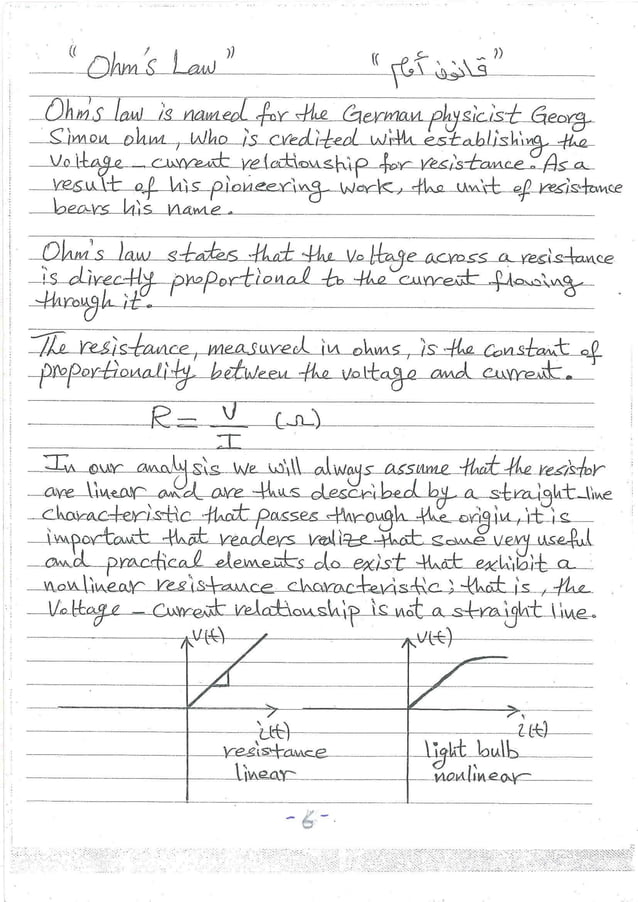 "Ohm's Law" "قانون أوم"
Ohm's law is named for the German physicist Georg
Simon ohm, Who is credited with establishing the
Voltage - current relationship for resistance. As a
result of his pioneering work, the unit of resistance
bears his name.
Ohm's law states that the voltage across a resistance
is directly proportional to the current flowing
through it.
The resistance, measured in ohms, is the constant of
proportionality between the voltage and current.
R = V/I (Ω)
In our analysis we will always assume that the resistor
are linear and are thus described by a straight-line
characteristic that passes through the origin, it is
important that readers realize that some very useful
and practical elements do exist that exhibit a
nonlinear resistance characteristic; that is, the
Voltage - current relationship is not a straight line.
V(t) V(t)
i(t) i(t)
resistance light bulb
linear nonlinear
-6-